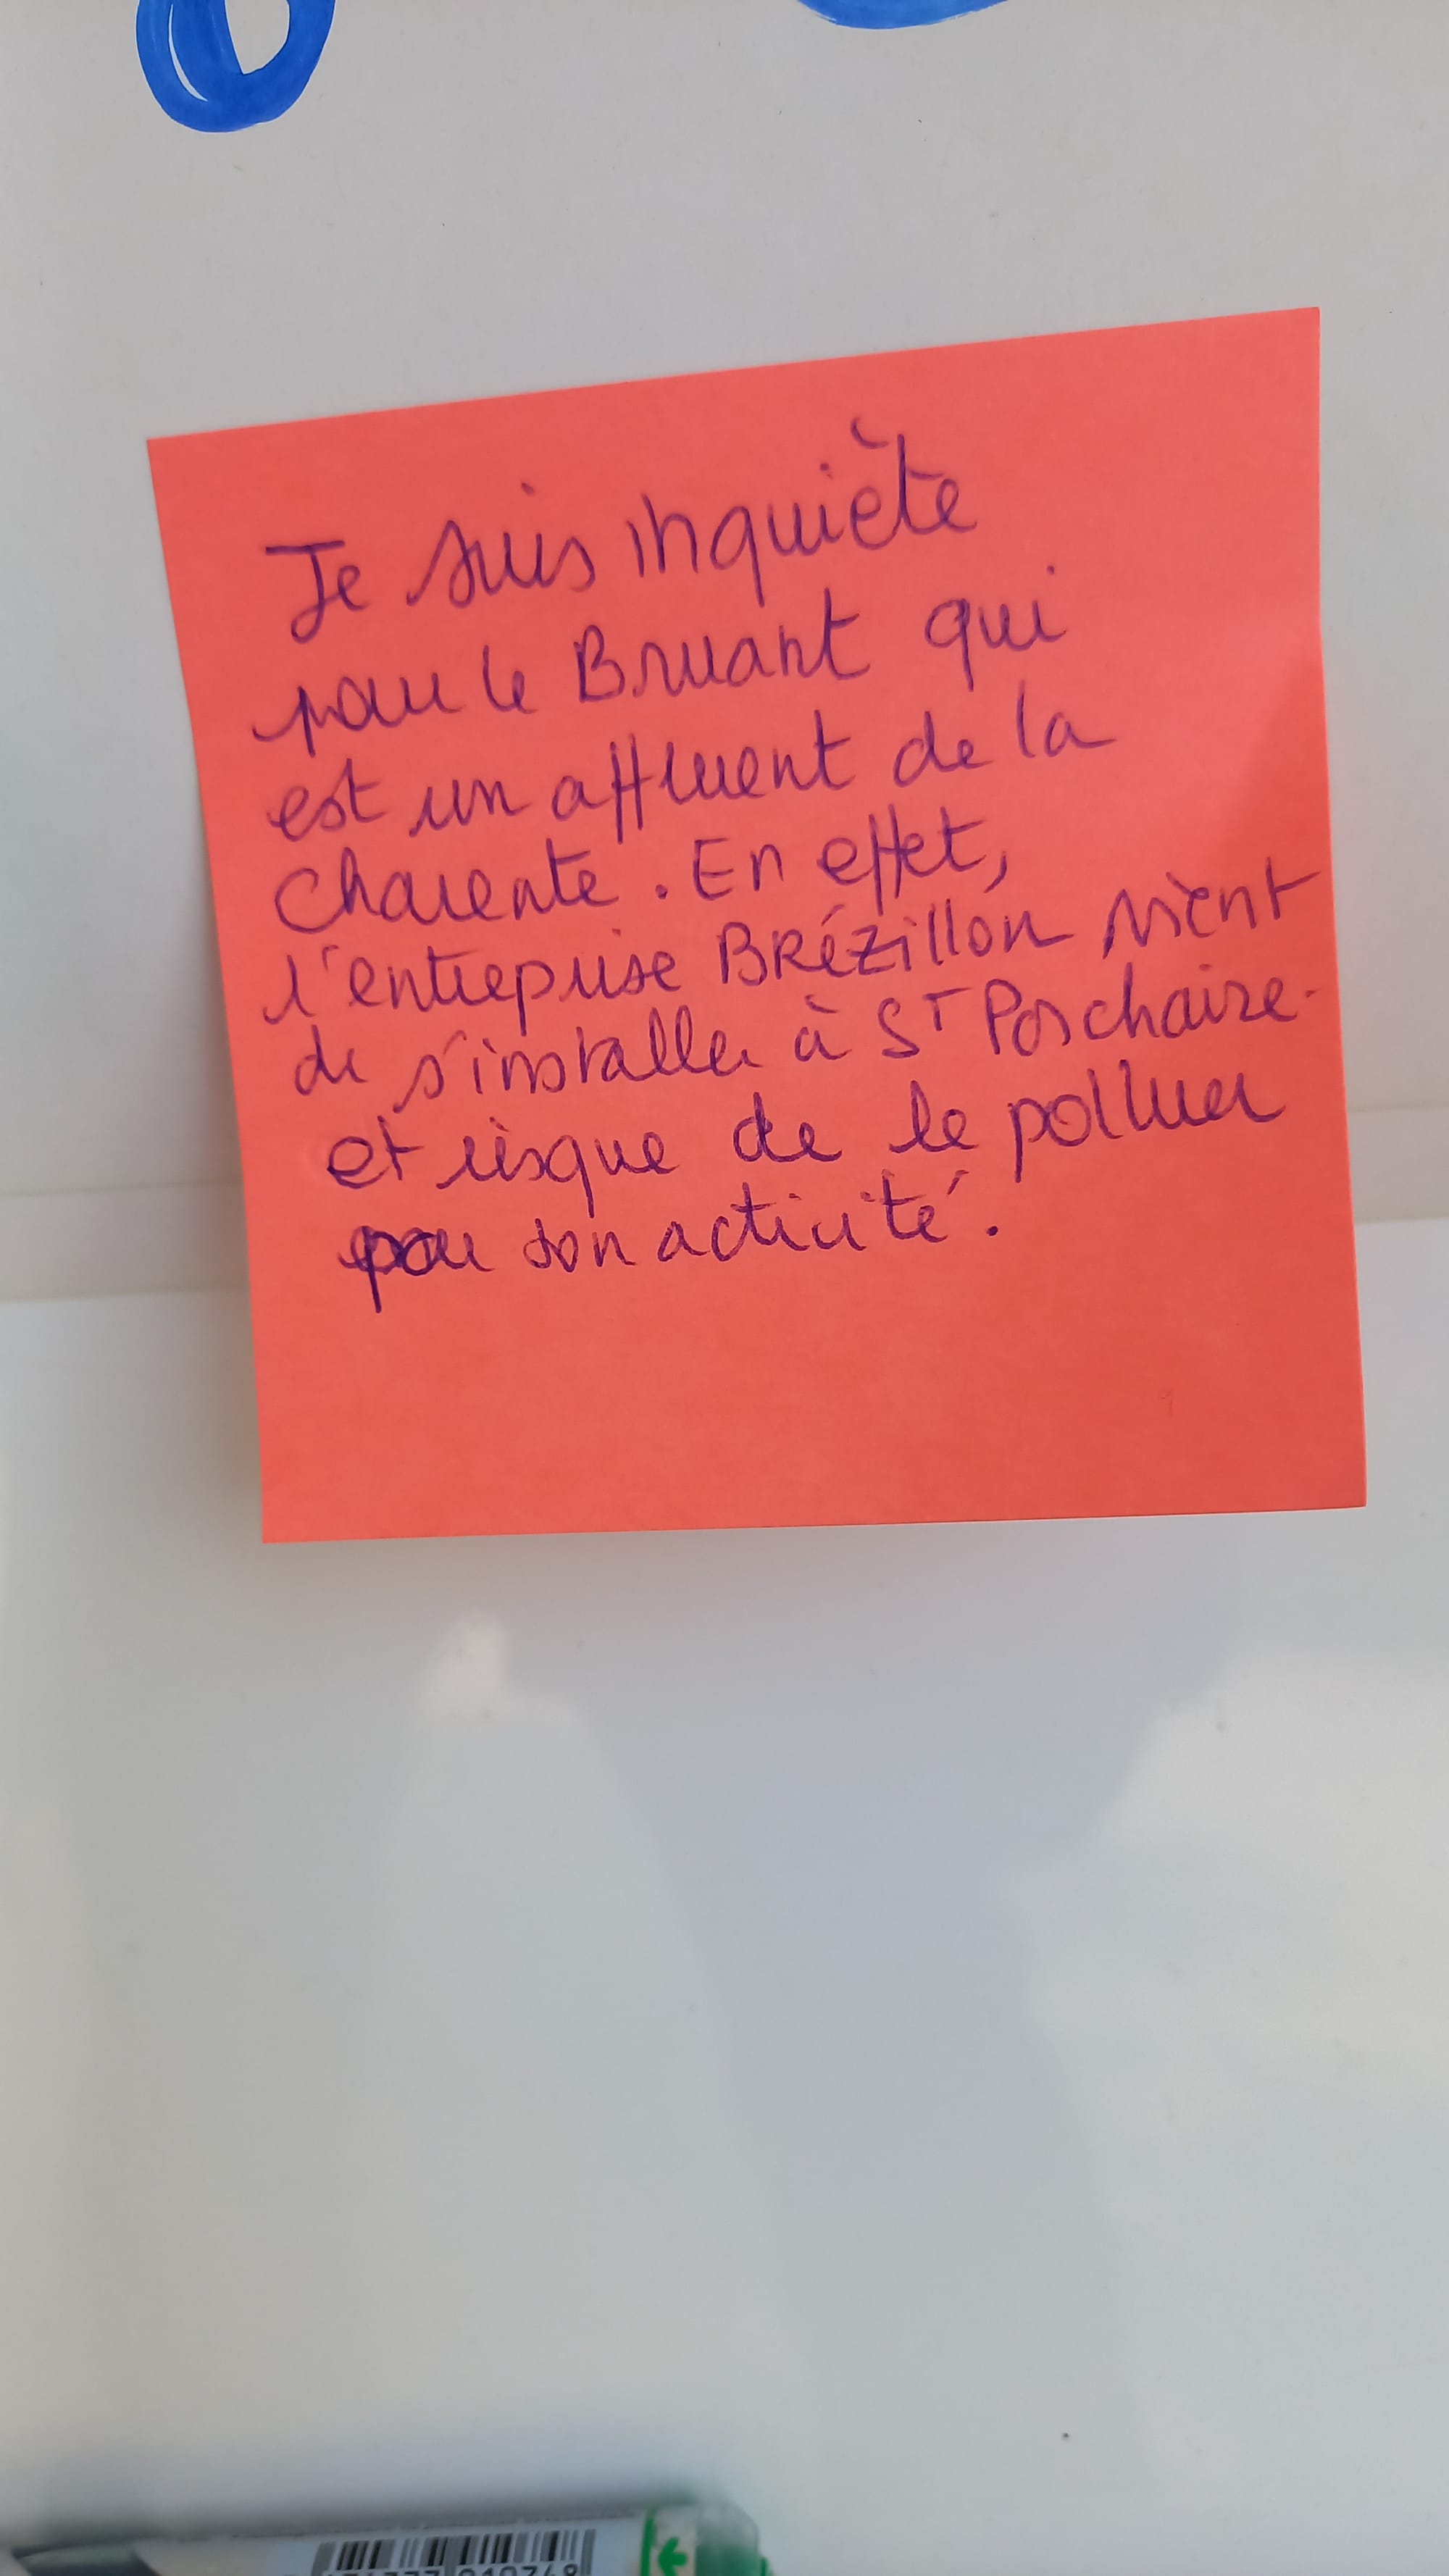 Je suis inquiète
pour le Bruant qui
est un affluent de la
Charente. En effet,
l'entreprise BRÉZILLON vient
de s'installer à ST Porchaire.
et risque de le polluer
par son activité.